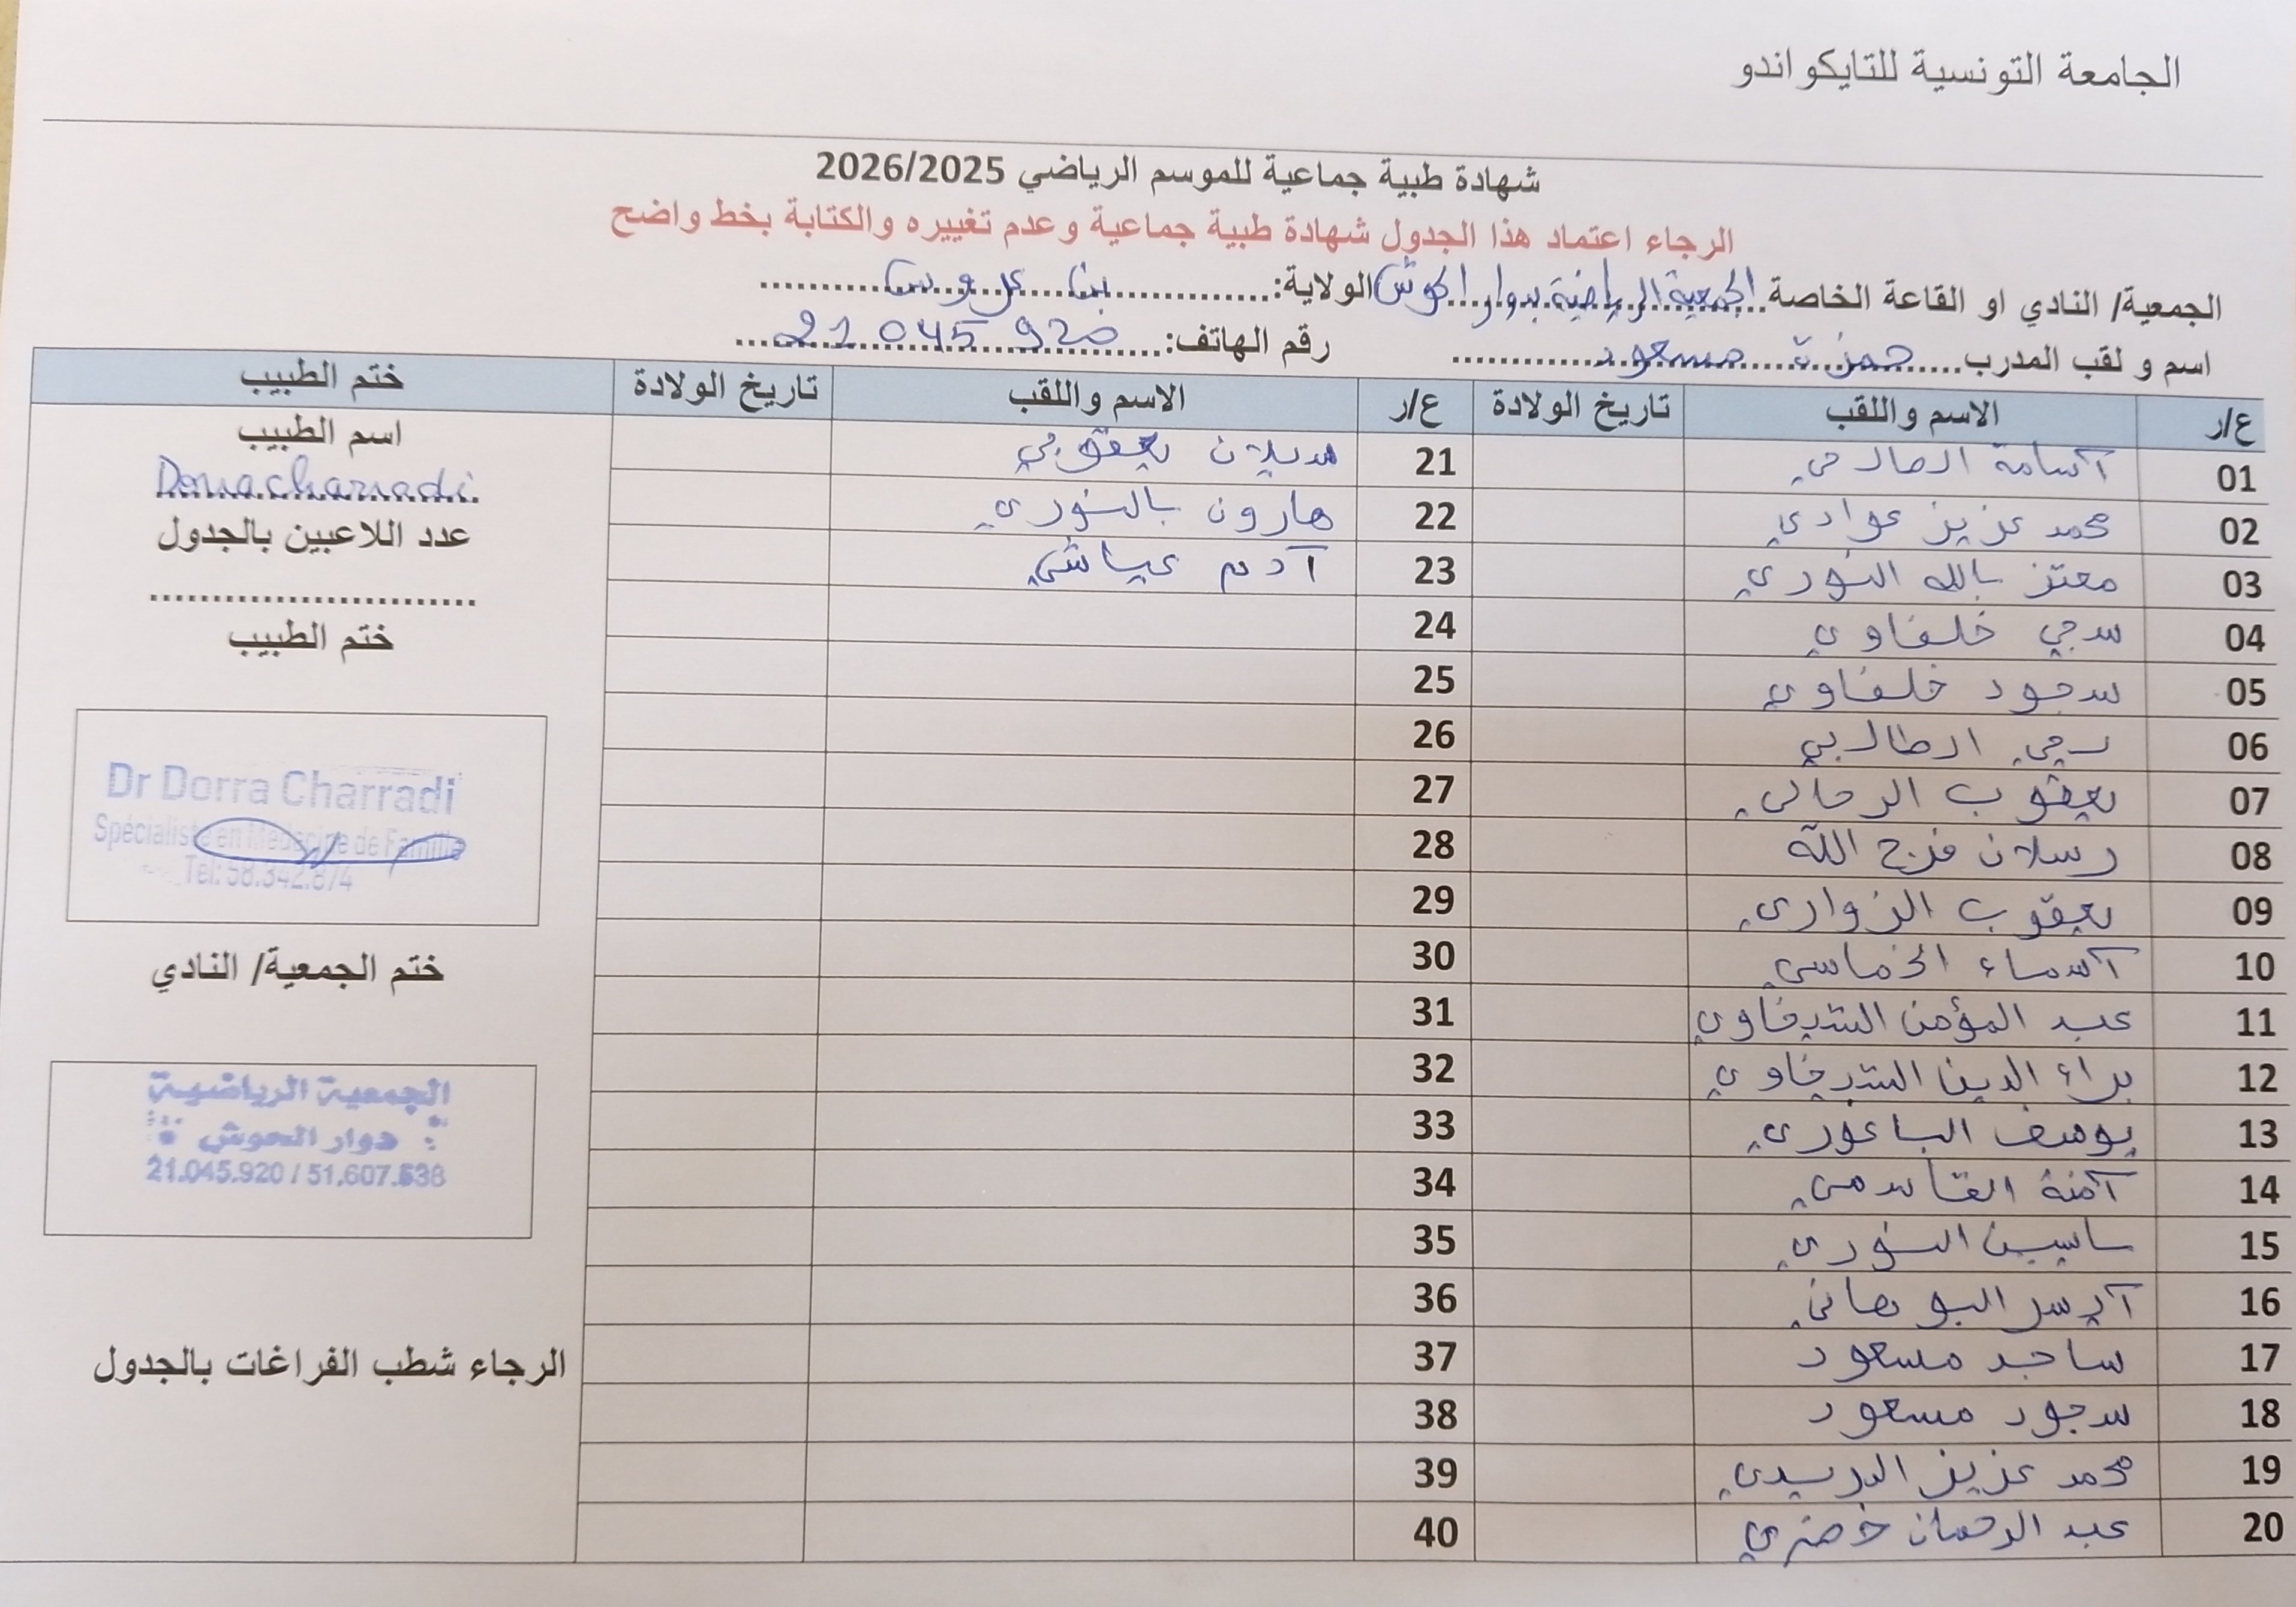 الجامعة التونسية للتايكواندو
شهادة طبية جماعية للموسم الرياضي 2026/2025
الرجاء اعتماد هذا الجدول شهادة طبية جماعية وعدم تغييره والكتابة بخط واضح
الجمعية/ النادي او القاعة الخاصة الجمعية الرياضية بدوار الحوش الولاية: بن عروس
اسم و لقب المدرب حمزة مسعود رقم الهاتف: 21 045 920
ع/ر الاسم واللقب تاريخ الولادة ع/ر الاسم واللقب تاريخ الولادة ختم الطبيب
01 آسامة الصالحي
02 محمد عزيز عوادي
03 معتز بالله النوري
04 سجي خلفاوي
05 سجود خلفاوي
06 الطالبي
07 يعقوب الرحالي
08 رسلان فرج الله
09 يعقوب الزواري
10 آسماء الخماسي
11 عبد المؤمن الشرفاوي
12 براء الدين
13 يوسف الباغوري
14 آمنة القاسمي
15 ساسين النوري
16
17 ساجد مسعود
18 سجود مسعود
19 محمد عزيز الدريدي
20 عبد الرحمان خضري
21 يعقوبي
22 هارون بالنوري
23 آدم عياشي
24
25
26
27
28
29
30
31
32
33
34
35
36
37
38
39
40
اسم الطبيب
Dorra charradi
عدد اللاعبين بالجدول
ختم الطبيب
Dr Dorra Charradi
Spécialiste en Médecine de Famille
Tel: 58.342.874
ختم الجمعية/ النادي
الجمعية الرياضية
دوار الحوش
21.045.920 / 51.607.638
الرجاء شطب الفراغات بالجدول